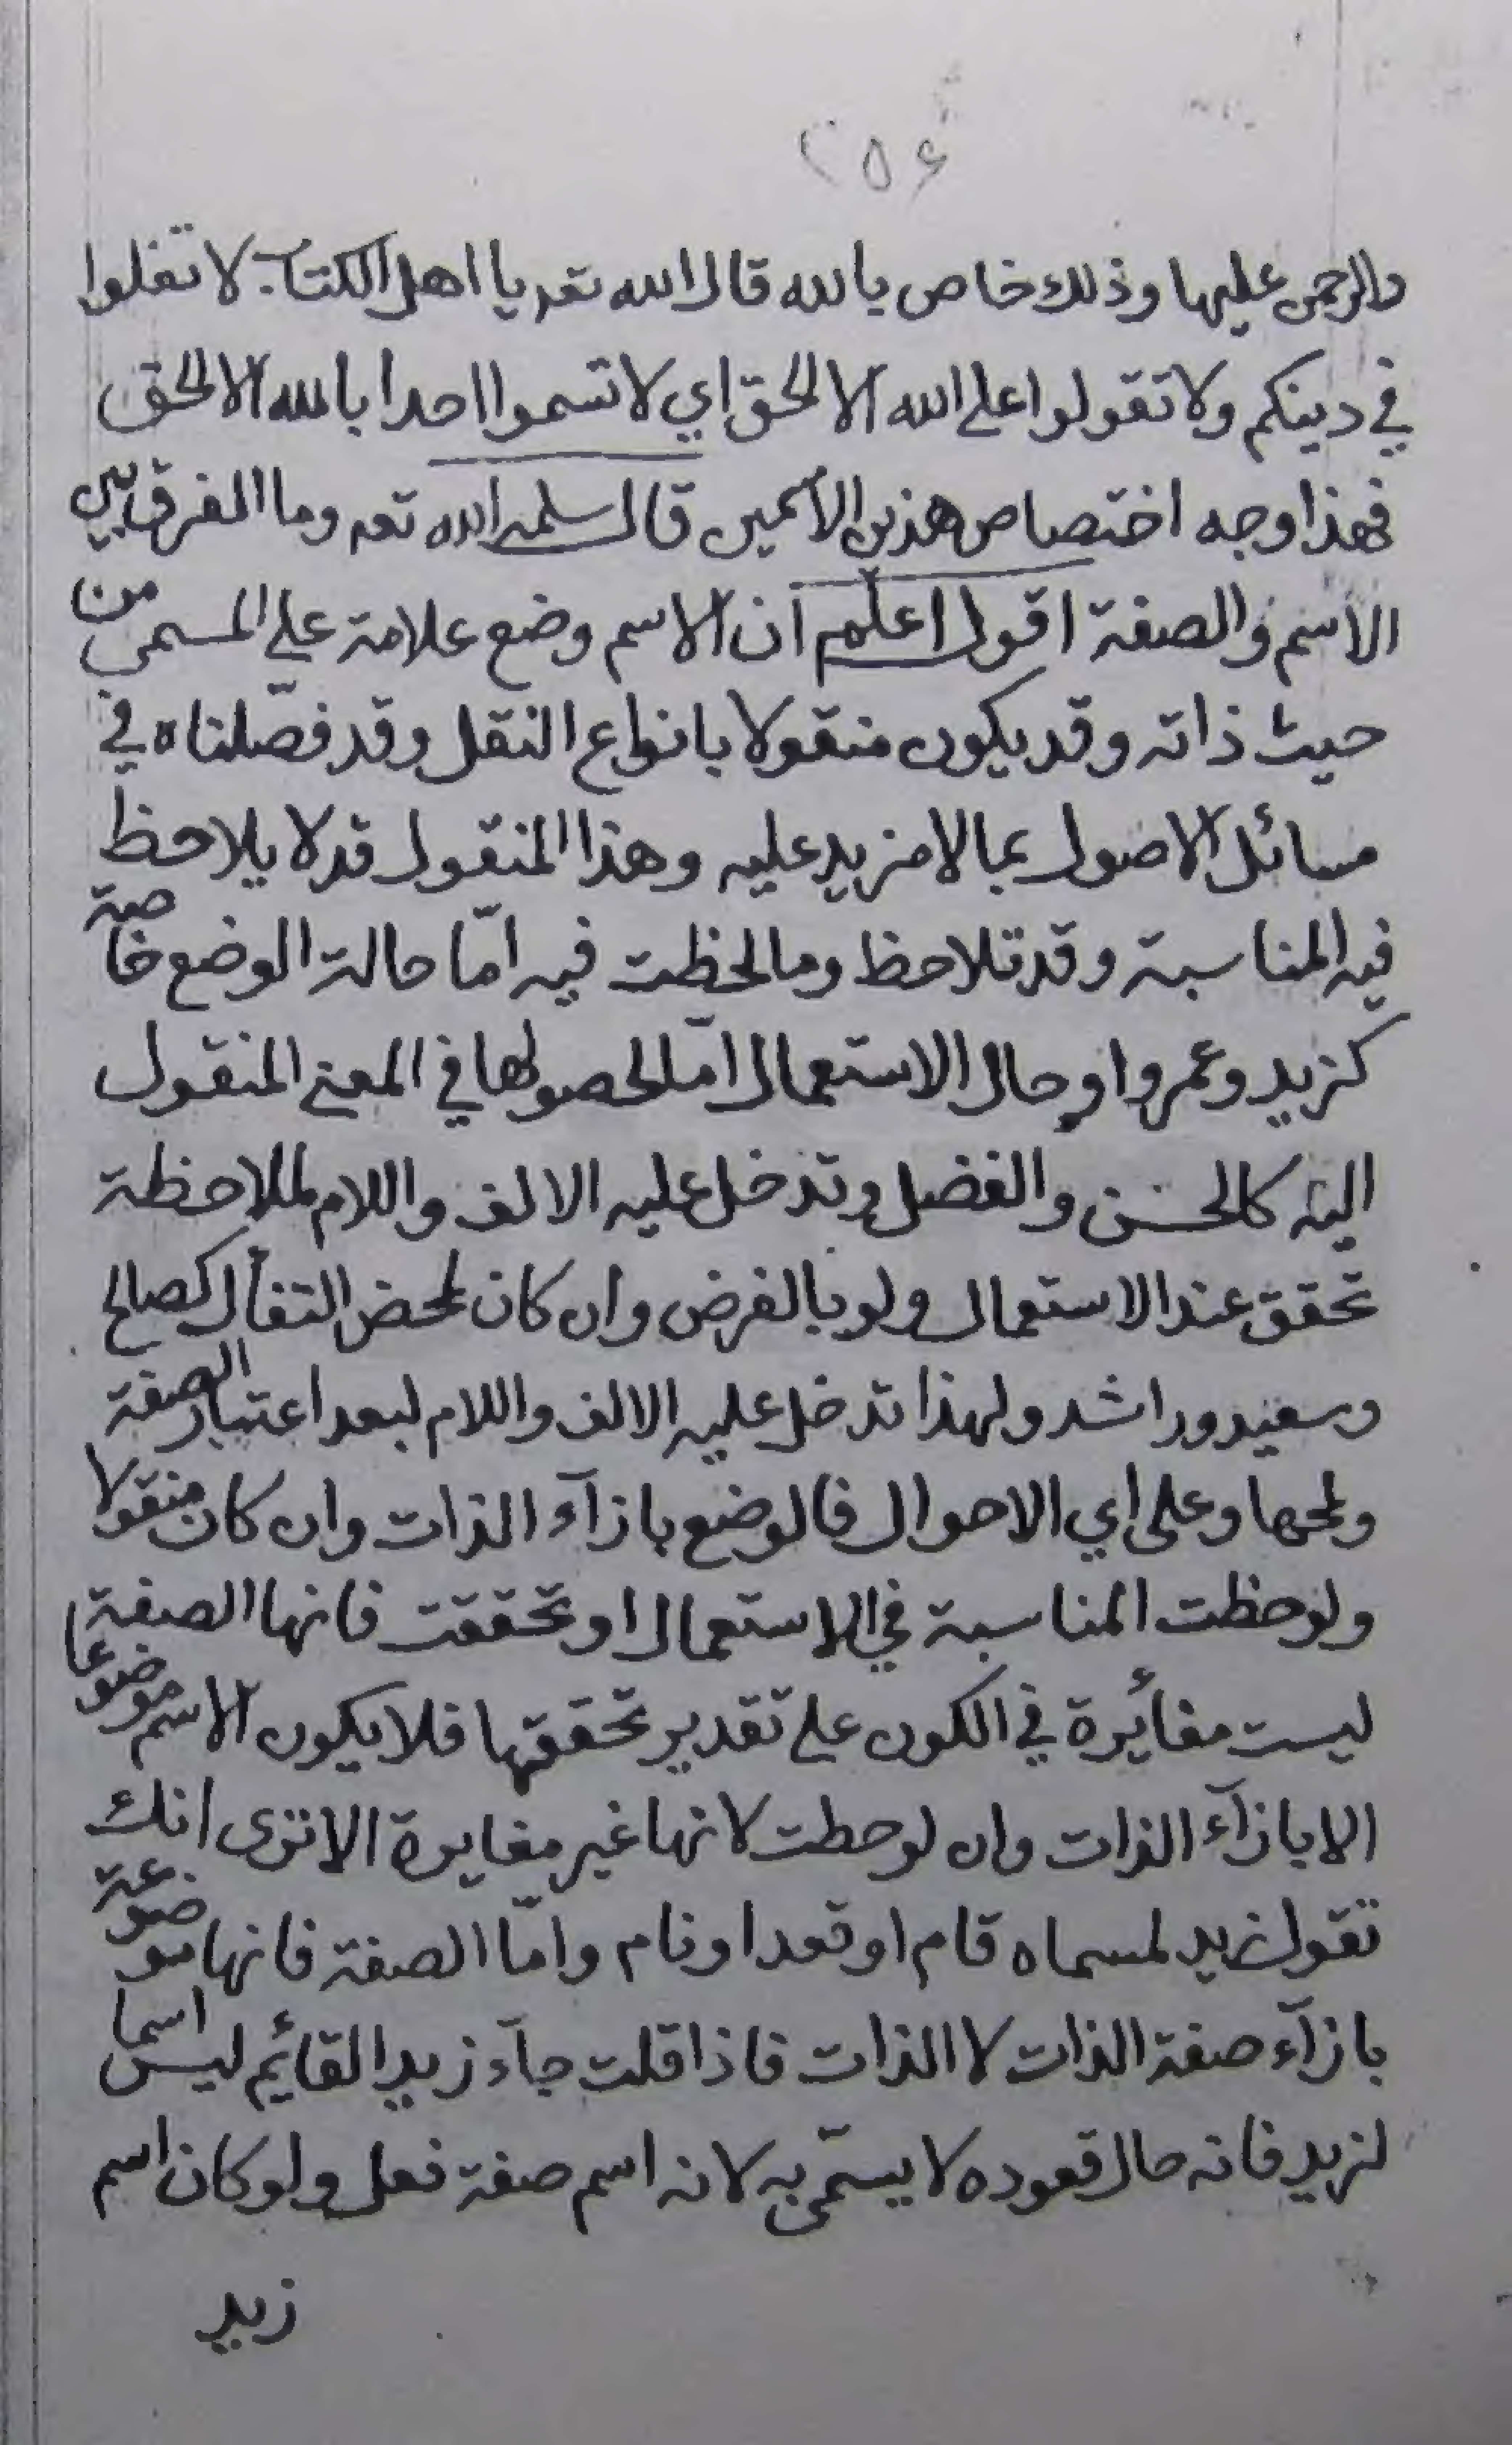 ٢٥٤
والرحمن عليها وذلك خاص بالله قال الله تعه يا اهل الكتاب لا تغلوا
في دينكم ولا تقولوا على الله الا الحق اي لا تسموا احدا بالله الا الحق
فهذا وجه اختصاص هذين الاسمين قال سلمه الله تعه وما الفرق بين
الاسم والصفة اقول اعلم ان الاسم وضع علامة على المسمى من
حيث ذاته وقد يكون منقولا بانواع النقل وقد فصّلناه في
مسائل الاصول بما لا مزيد عليه وهذا المنقول قد لا يلاحظ
فيه المناسبة وقد تلاحظ وما لحظت فيه امّا حالة الوضع خاصة
كزيد وعمرو او حال الاستعمال امّا لحصولها في المعنى المنقول
اليه كالحسن والفضل وتدخل عليه الالف واللام لملاحظة
تحقق عند الاستعمال ولو بالفرض وان كان لمحض التفأل كصالح
وسعيد وراشد ولهذا تدخل عليه الالف واللام لبعد اعتبار الصفة
ولمحها وعلى اي الاحوال فالوضع بازآء الذات وان كان منقولا
ولوحظت المناسبة في الاستعمال او تحققت فانها الصفة
ليست مغائرة في الكون على تقدير تحققها فلا يكون الاسم موضوعا
الا بازآء الذات وان لوحطت لانها غير مغايرة الا ترى انك
تقول زيد لمسماه قام او قعد او نام وامّا الصفة فانها موضوعة
بازآء صفة الذات لا الذات فاذا قلت جآء زيد القائم ليس اسما
لزيد فانه حال قعوده لا يسمّى به لانه اسم صفة فعل ولو كان اسم
زيد